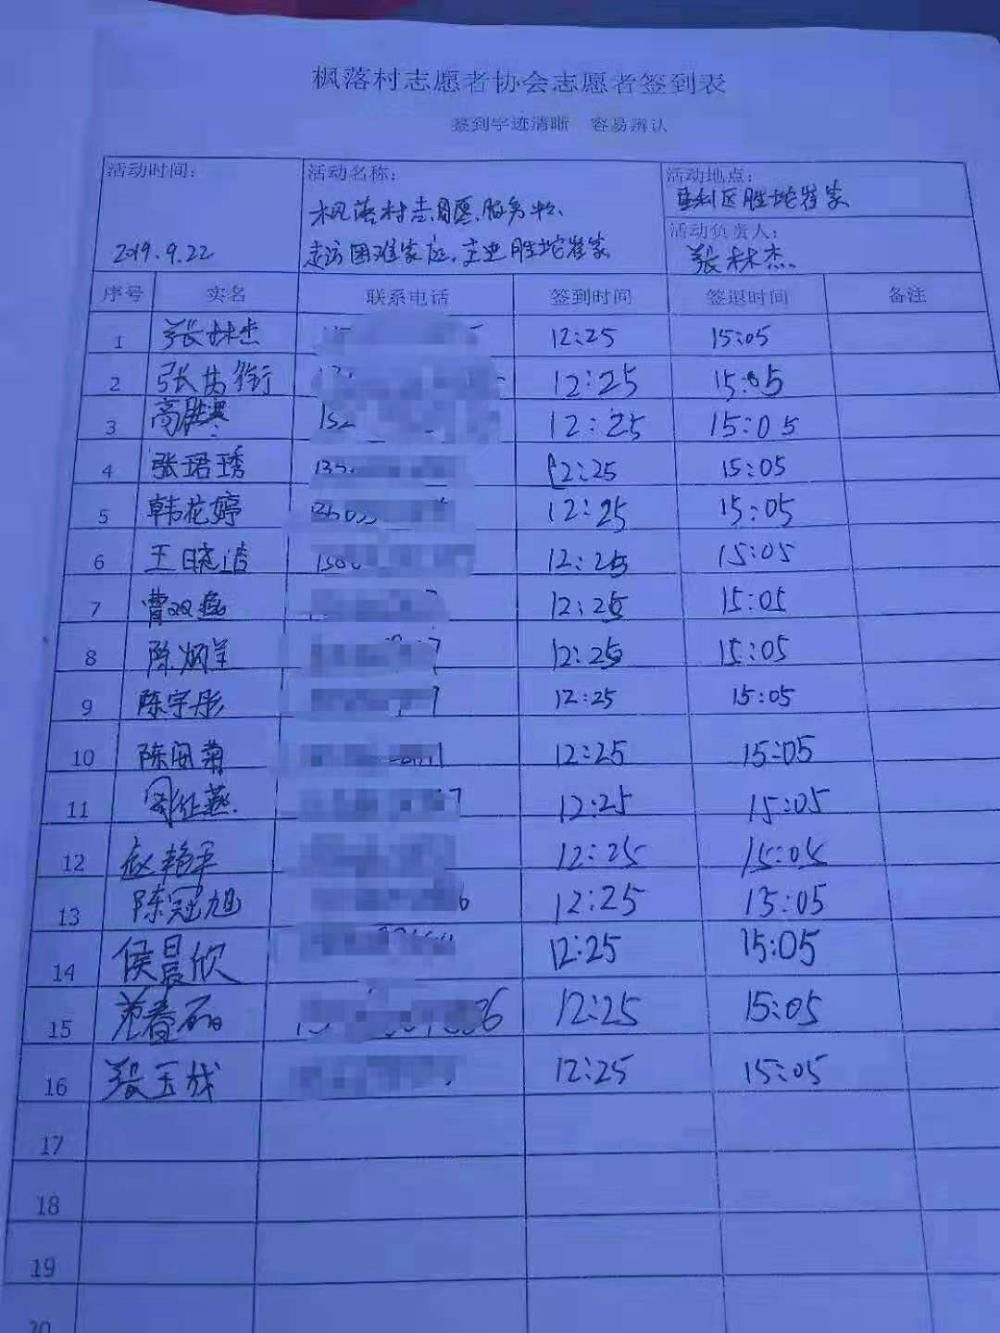 枫落村志愿者协会志愿者签到表
签到字迹清晰 容易辨认
活动时间: 2019.9.22
活动名称: 枫落村志愿服务队
走访困难家庭,走进胜坨崔家
活动地点: 垦利区胜坨崔家
活动负责人: 张林杰
序号 实名 联系电话 签到时间 签退时间 备注
1 张林杰 12:25 15:05
2 张 衔 12:25 15:05
3 高胜 152 12:25 15:05
4 张珺琇 135 12:25 15:05
5 韩花婷 12:25 15:05
6 王晓洁 12:25 15:05
7 曹双 12:25 15:05
8 陈炳 7 12:25 15:05
9 陈宇彤 7 12:25 15:05
10 陈安菊 12:25 15:05
11 红燕 7 12:25 15:05
12 赵艳平 12:25 15:05
13 陈冠旭 6 12:25 15:05
14 侯晨欣 12:25 15:05
15 春 36 12:25 15:05
16 玉 12:25 15:05
17
18
19
20